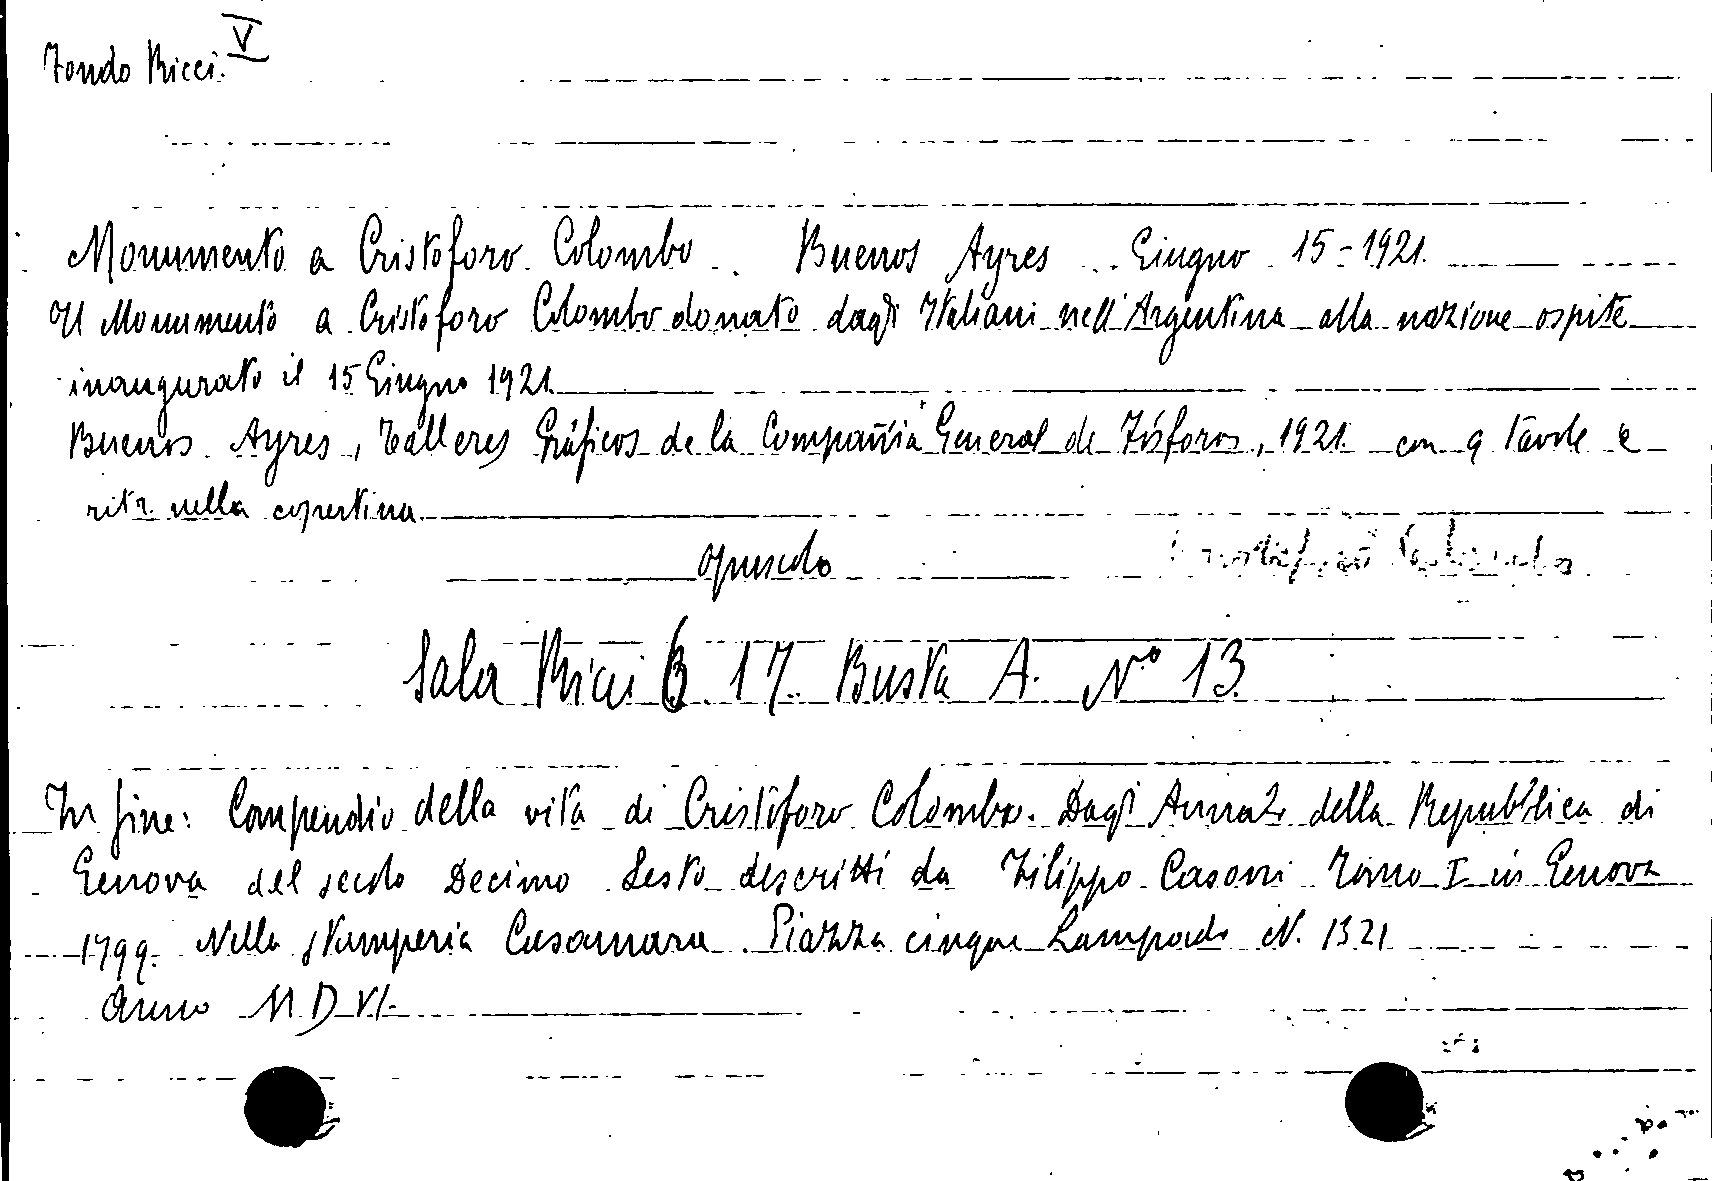 Fondo Ricci. V
Monumento a Cristoforo Colombo. Buenos Ayres. Giugno 15-1921.
Il Monumento a Cristoforo Colombo donato dagli Italiani nell'Argentina alla nazione ospite
inaugurato il 15 Giugno 1921.
Buenos Ayres, Talleres Gráficos de la Compañia General de Fósforos, 1921. con 9 tavole e
ritr. nella copertina.
opuscolo
Cristoforo Colombo
Sala Ricci B 17. Busta A. N° 13.
In fine: Compendio della vita di Cristoforo Colombo. Dagli Annali della Repubblica di
Genova del secolo Decimo Sesto descritti da Filippo Casoni Tomo I in Genova
1799. Nella stamperia Casamara. Piazza cinque Lampade N. 1321
Anno MDVI.